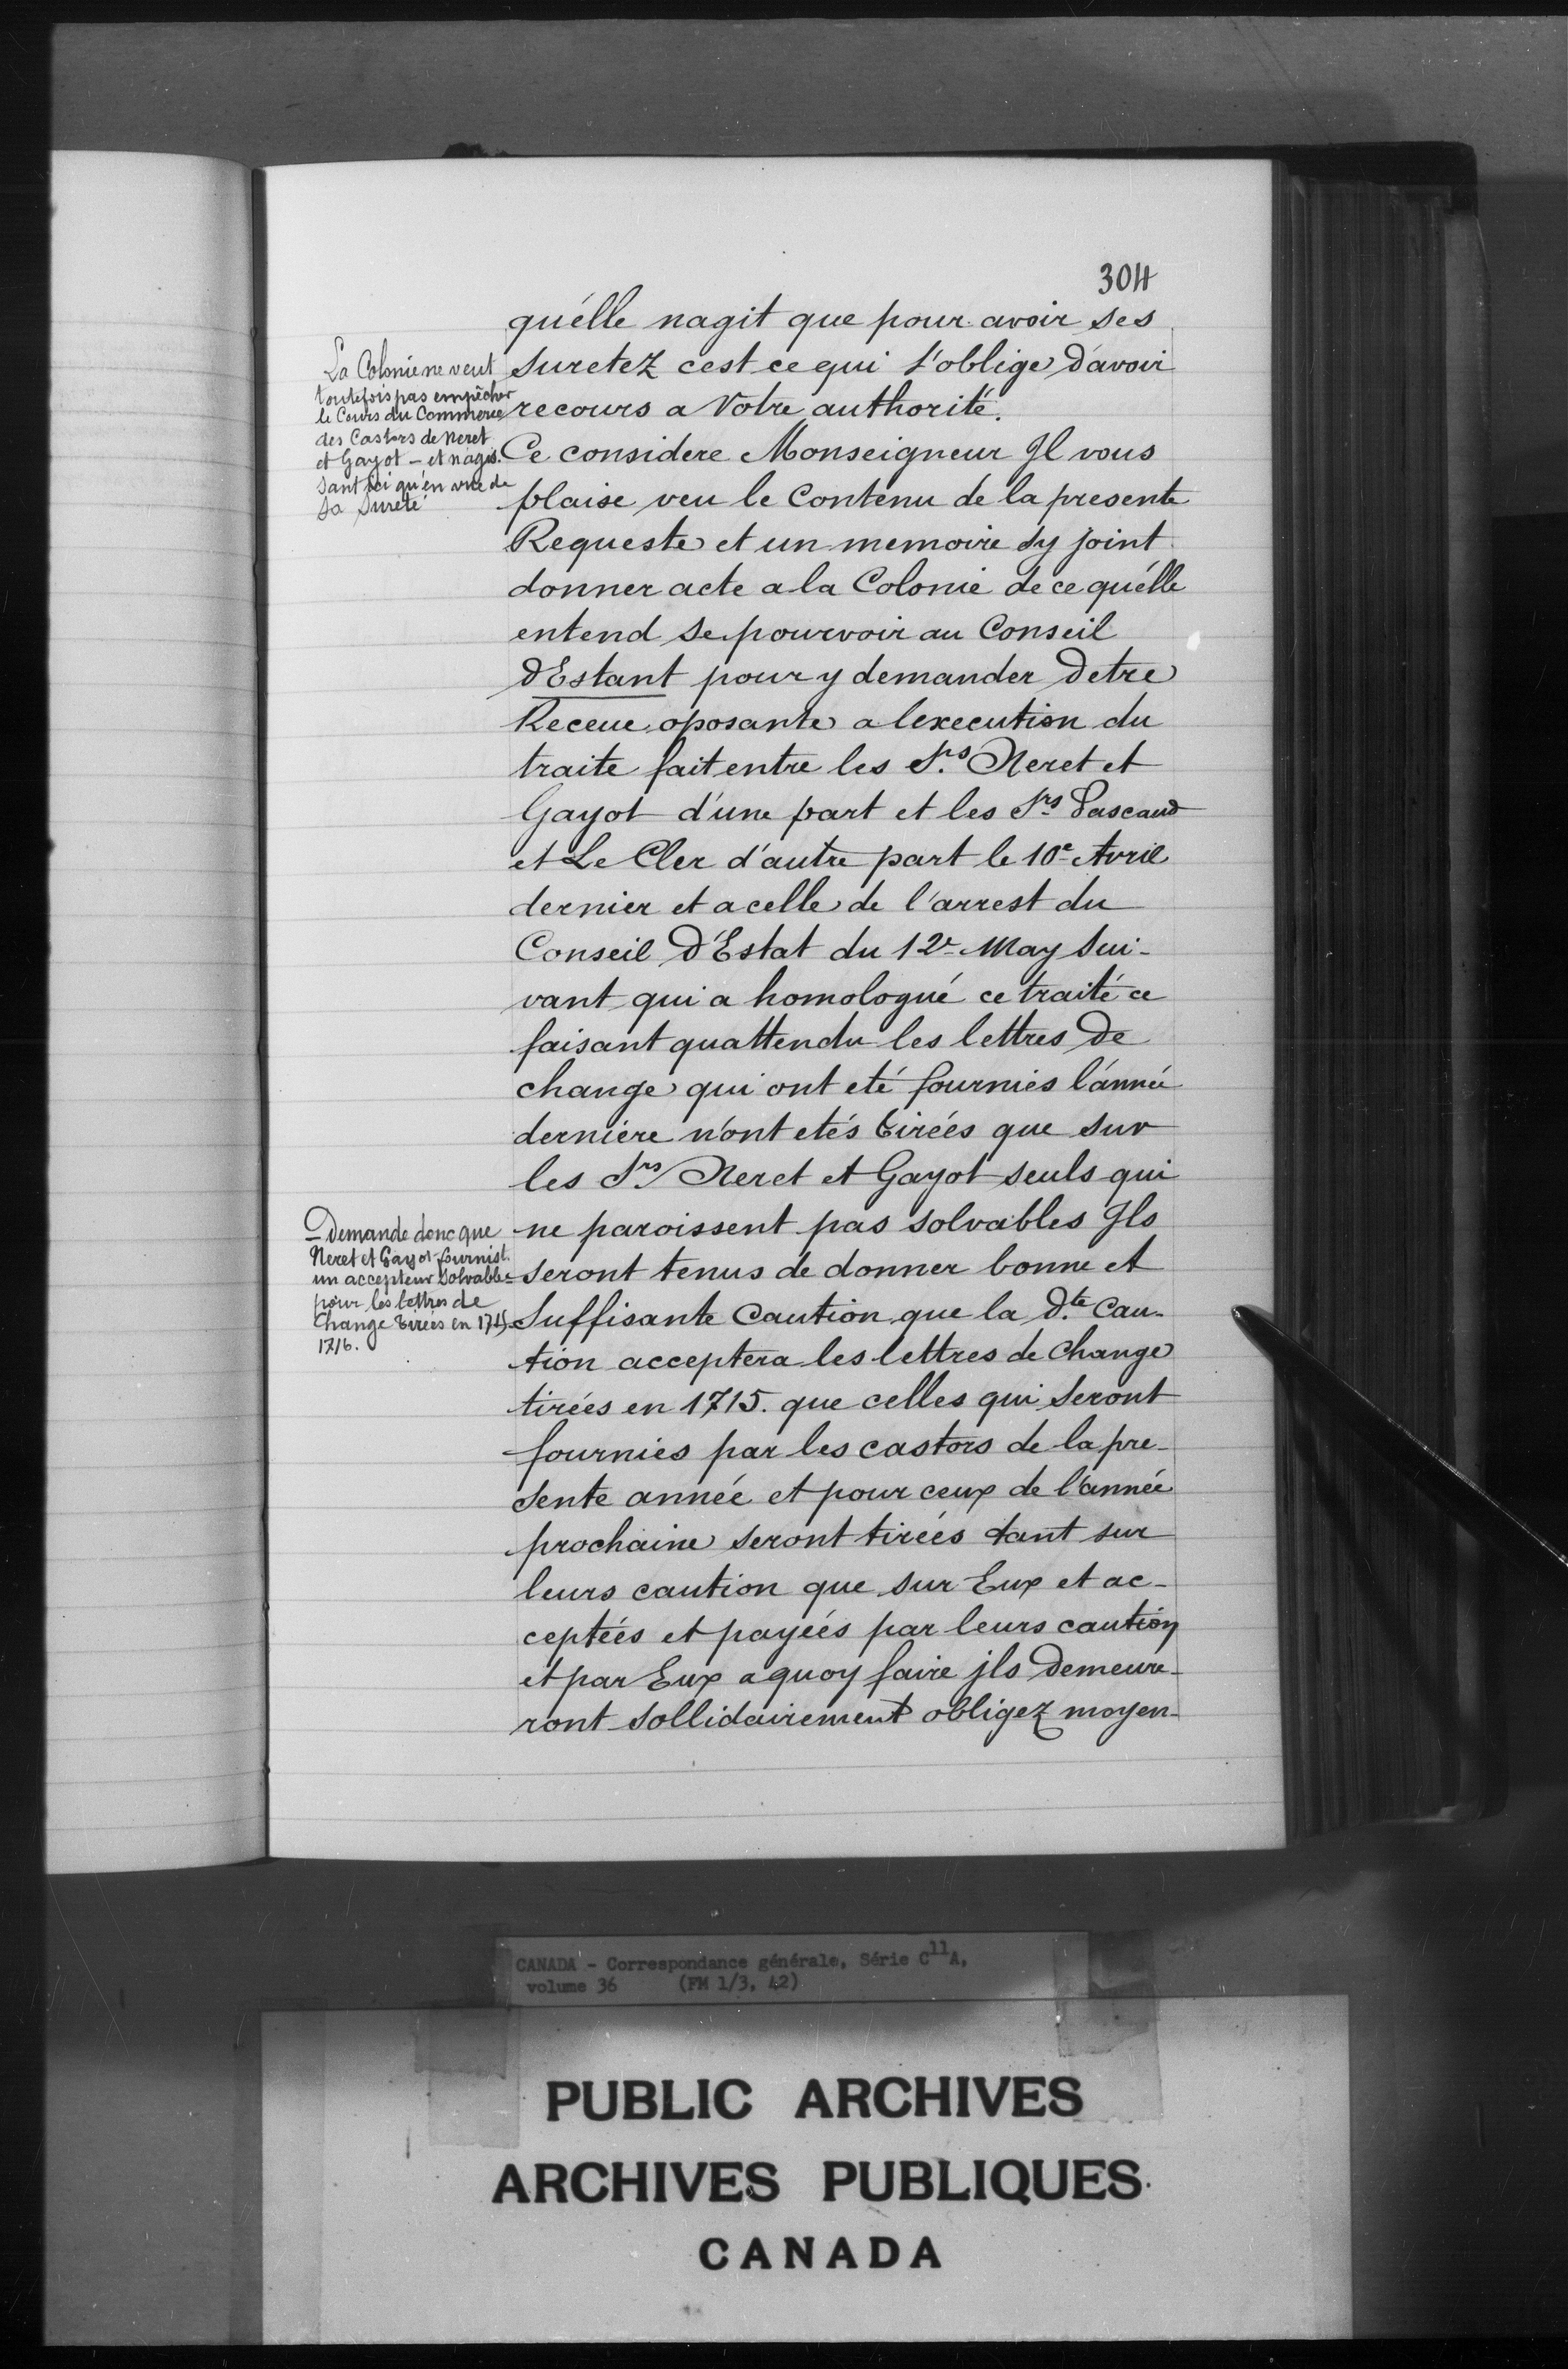 304
qu'élle nagit que pour avoir ses
La Colonie ne veut
toutefois pas empêcher
le Cours du Commerce
des Castors de Neret
et Gayot - et n'agis-
sant ici qu'en vue de
sa Sureté
suretez cest ce qui l'oblige D'avoir
recours a Votre authorité.
Ce considere Monseigneur Jl vous
plaise veu le Contenu de la presente
Requeste et un memoire Sy joint
donner acte a la Colonie de ce qu'élle
entend se pourvoir au Conseil
D'Estant pour y demander Detre
Receue oposante a lexecution du
traite fait entre les Srs Neret et
Gayot d'une part et les Srs Pascaud
et Le Cler d'autre part le 10e Avril
dernier et a celle de l'arrest du
Conseil D'Estat du 12e May Sui-
vant qui a homologué ce traité ce
faisant quattendu les lettres De
change qui ont eté fournies l'année
derniére n'ont etés tirées que sur
les Srs Neret et Gayot seuls qui
Demande donc que
Neret et Gayot fournist.
un accepteur Solvable
pour les lettres de
Change tirées en 1715-
1716.
ne paroissent pas solvables Jls
seront tenus de donner bonne et
Suffisante Caution que la Dte Cau-
tion acceptera les lettres de Change
tirées en 1715. que celles qui Seront
fournies par les castors de la pre-
sente année et pour ceux de l'année
prochaine seront tirées tant sur
leurs caution que sur Eux et ac-
ceptées et payées par leurs caution
et par Eux a quoy faire jls Demeure-
ront sollidairement obligez moyen-
CANADA - Correspondance générale, Série C11A,
volume 36 (FM 1/3, 42)
PUBLIC ARCHIVES
ARCHIVES PUBLIQUES
CANADA